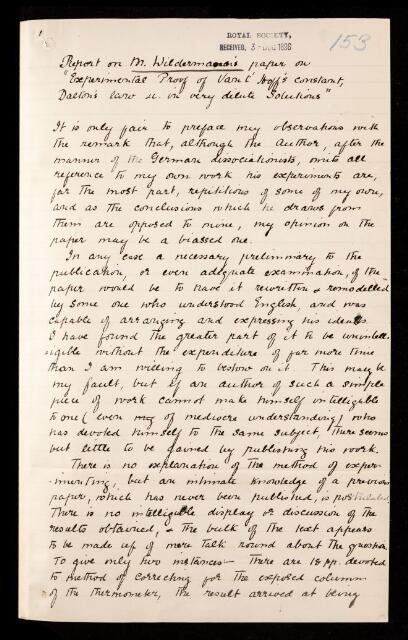 ROYAL SOCIETY,
RECEIVED, 3 - DEC 1896
153
Report on M. Wilderman's paper on
"Experimental Proof of Van't Hoff's constant,
Dalton's law &c. in very dilute Solutions"
It is only fair to preface my observations with
the remark that, although the Author, after the
manner of the German dissociationists, omits all
reference to my own work his experiments are,
for the most part, repititions of some of my own,
and as the conclusions which he draws from
them are opposed to mine, my opinion on the
paper may be a biassed one.
In any case a necessary preliminary to the
publication, or even adequate examination, of the
paper would be to have it rewritten & remodelled
by some one who understood English, and was
capable of arranging and expressing his ideas.
I have found the greater part of it to be unintell-
igible without the expenditure of far more time
than I am willing to bestow on it. This may be
my fault, but if an author of such a simple
piece of work cannot make himself intelligible
to one (even tho of mediocre understanding) who
has devoted himself to the same subject, there seems
but little to be gained by publishing his work.
There is no explanation of the method of exper-
-imenting, but an intimate knowledge of a previous
paper, which has never been published, is postulated.
There is no intelligible display or discussion of the
results obtained, & the bulk of the text appears
to be made up of mere talk round about the question.
To give only two instances— There are 18 pp. devoted
to method of correcting for the exposed column
of the thermometer, the result arrived at being